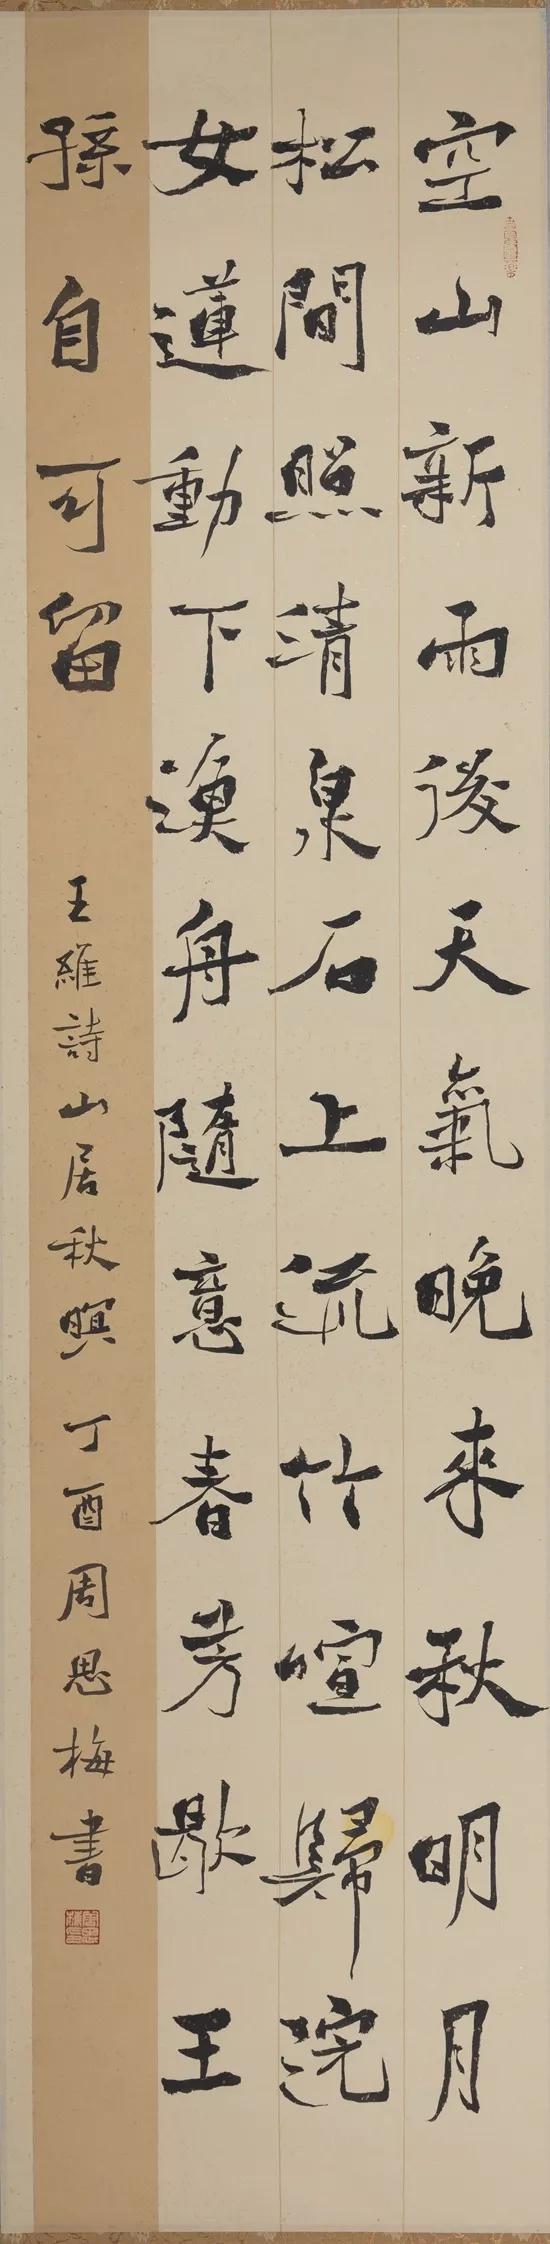 空山新雨後天氣晚來秋明月
松間照清泉石上流竹喧歸浣
女蓮動下漁舟隨意春芳歇王
孫自可留
王維詩山居秋暝 丁酉周思梅書